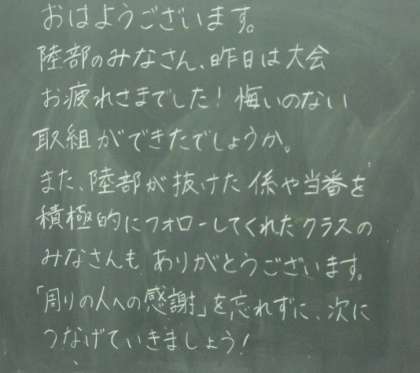 おはようございます。
陸部のみなさん、昨日は大会
お疲れさまでした！悔いのない
取組ができたでしょうか。
また、陸部が抜けた係や当番を
積極的にフォローしてくれたクラスの
みなさんも、ありがとうございます。
「周りの人への感謝」を忘れずに、次に
つなげていきましょう！